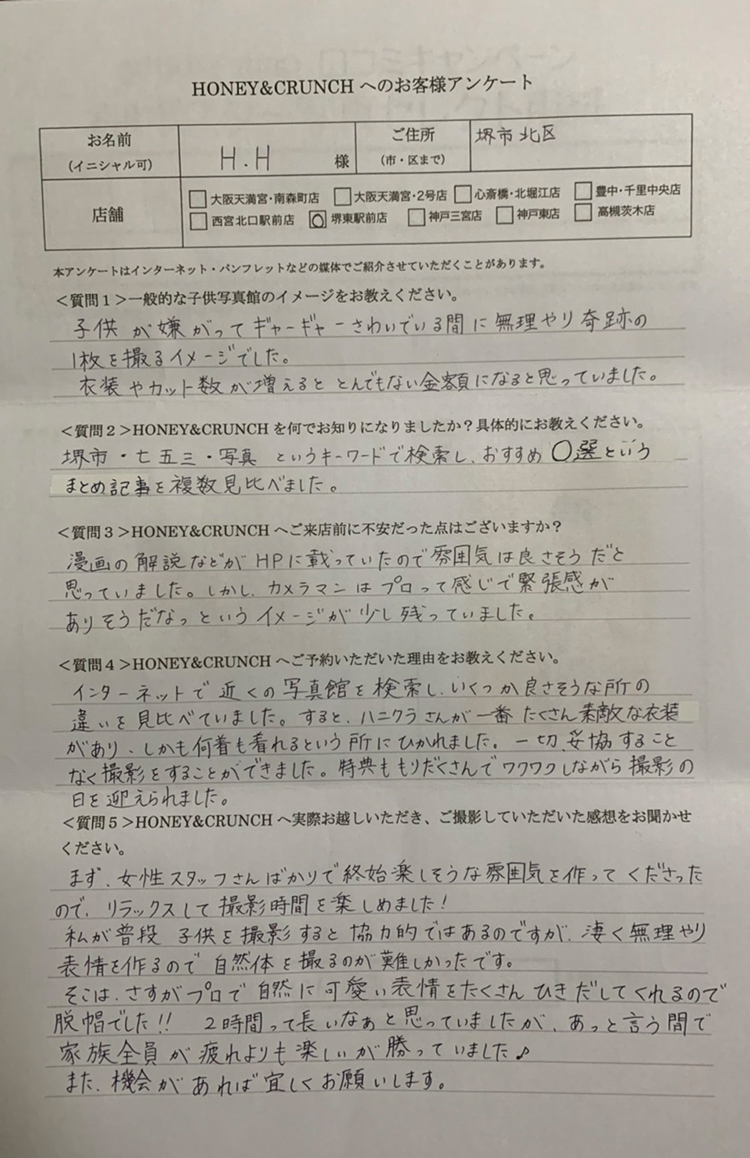 HONEY&CRUNCH へのお客様アンケート
お名前
(イニシャル可)
H.H 様
ご住所
(市・区まで)
堺市北区
店舗
□大阪天満宮・南森町店 □大阪天満宮・2号店 □心斎橋・北堀江店 □豊中・千里中央店
□西宮北口駅前店 ☑堺東駅前店 □神戸三宮店 □神戸東店 □高槻茨木店
本アンケートはインターネット・パンフレットなどの媒体でご紹介させていただくことがあります。
<質問1>一般的な子供写真館のイメージをお教えください。
子供が嫌がってギャーギャーさわいでいる間に無理やり奇跡の
1枚を撮るイメージでした。
衣装やカット数が増えるととんでもない金額になると思っていました。
<質問2>HONEY&CRUNCH を何でお知りになりましたか?具体的にお教えください。
堺市・七五三・写真 というキーワードで検索し、おすすめ〇選という
まとめ記事を複数見比べました。
<質問3>HONEY&CRUNCH へご来店前に不安だった点はございますか?
漫画の解説などがHPに載っていたので雰囲気は良さそうだと
思っていました。しかし、カメラマンはプロって感じで緊張感が
ありそうだなっというイメージが少し残っていました。
<質問4>HONEY&CRUNCH へご予約いただいた理由をお教えください。
インターネットで近くの写真館を検索し、いくつか良さそうな所の
違いを見比べていました。すると、ハニクラさんが一番たくさん素敵な衣装
があり、しかも何着も着れるという所にひかれました。一切妥協すること
なく撮影をすることができました。特典ももりだくさんでワクワクしながら撮影の
日を迎えられました。
<質問5>HONEY&CRUNCH へ実際お越しいただき、ご撮影していただいた感想をお聞かせ
ください。
まず、女性スタッフさんばかりで終始楽しそうな雰囲気を作ってくださった
ので、リラックスして撮影時間を楽しめました!
私が普段 子供を撮影すると協力的ではあるのですが、凄く無理やり
表情を作るので自然体を撮るのが難しかったです。
そこは、さすがプロで自然に可愛い表情をたくさんひきだしてくれるので
脱帽でした!! 2時間って長いなぁと思っていましたが、あっと言う間で
家族全員が疲れよりも楽しいが勝っていました♪
また、機会があれば宜しくお願いします。